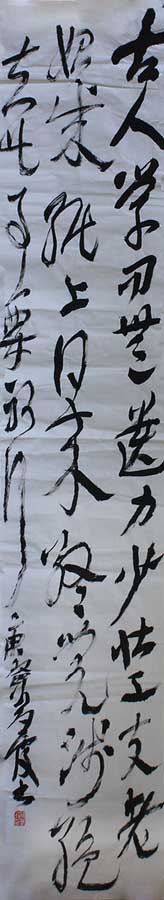 古人学问无遗力少壮工夫老
始成纸上得来终觉浅绝
知此事要躬行 庚寅 书